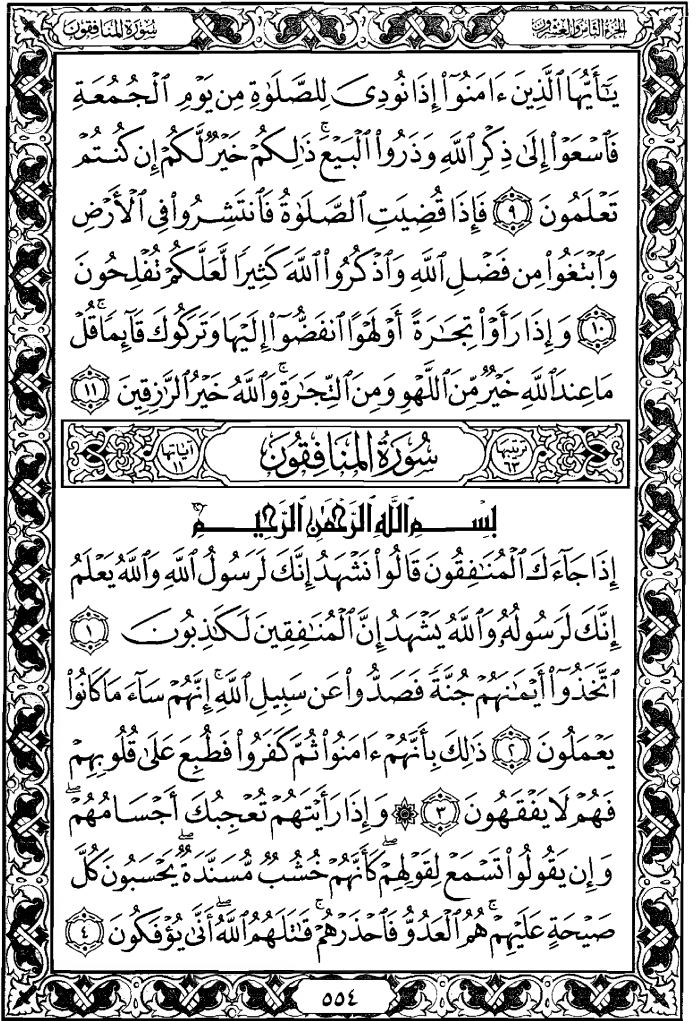 سورة المنافقون
الجزء الثامن والعشرون
يَٰٓأَيُّهَا ٱلَّذِينَ ءَامَنُوٓا۟ إِذَا نُودِىَ لِلصَّلَوٰةِ مِن يَوْمِ ٱلْجُمُعَةِ
فَٱسْعَوْا۟ إِلَىٰ ذِكْرِ ٱللَّهِ وَذَرُوا۟ ٱلْبَيْعَ ۚ ذَٰلِكُمْ خَيْرٌ لَّكُمْ إِن كُنتُمْ
تَعْلَمُونَ ٩ فَإِذَا قُضِيَتِ ٱلصَّلَوٰةُ فَٱنتَشِرُوا۟ فِى ٱلْأَرْضِ
وَٱبْتَغُوا۟ مِن فَضْلِ ٱللَّهِ وَٱذْكُرُوا۟ ٱللَّهَ كَثِيرًا لَّعَلَّكُمْ تُفْلِحُونَ
١٠ وَإِذَا رَأَوْا۟ تِجَٰرَةً أَوْ لَهْوًا ٱنفَضُّوٓا۟ إِلَيْهَا وَتَرَكُوكَ قَآئِمًا ۚ قُلْ
مَا عِندَ ٱللَّهِ خَيْرٌ مِّنَ ٱللَّهْوِ وَمِنَ ٱلتِّجَٰرَةِ ۚ وَٱللَّهُ خَيْرُ ٱلرَّٰزِقِينَ ١١
ترتيبها ٦٣ سُورَةُ المُنَافِقُونَ آياتها ١١
بِسْمِ ٱللَّهِ ٱلرَّحْمَٰنِ ٱلرَّحِيمِ
إِذَا جَآءَكَ ٱلْمُنَٰفِقُونَ قَالُوا۟ نَشْهَدُ إِنَّكَ لَرَسُولُ ٱللَّهِ وَٱللَّهُ يَعْلَمُ
إِنَّكَ لَرَسُولُهُۥ وَٱللَّهُ يَشْهَدُ إِنَّ ٱلْمُنَٰفِقِينَ لَكَٰذِبُونَ ١
ٱتَّخَذُوٓا۟ أَيْمَٰنَهُمْ جُنَّةً فَصَدُّوا۟ عَن سَبِيلِ ٱللَّهِ ۚ إِنَّهُمْ سَآءَ مَا كَانُوا۟
يَعْمَلُونَ ٢ ذَٰلِكَ بِأَنَّهُمْ ءَامَنُوا۟ ثُمَّ كَفَرُوا۟ فَطُبِعَ عَلَىٰ قُلُوبِهِمْ
فَهُمْ لَا يَفْقَهُونَ ٣ ۞ وَإِذَا رَأَيْتَهُمْ تُعْجِبُكَ أَجْسَامُهُمْ ۖ
وَإِن يَقُولُوا۟ تَسْمَعْ لِقَوْلِهِمْ ۖ كَأَنَّهُمْ خُشُبٌ مُّسَنَّدَةٌ ۖ يَحْسَبُونَ كُلَّ
صَيْحَةٍ عَلَيْهِمْ ۚ هُمُ ٱلْعَدُوُّ فَٱحْذَرْهُمْ ۚ قَٰتَلَهُمُ ٱللَّهُ ۖ أَنَّىٰ يُؤْفَكُونَ ٤
٥٥٤